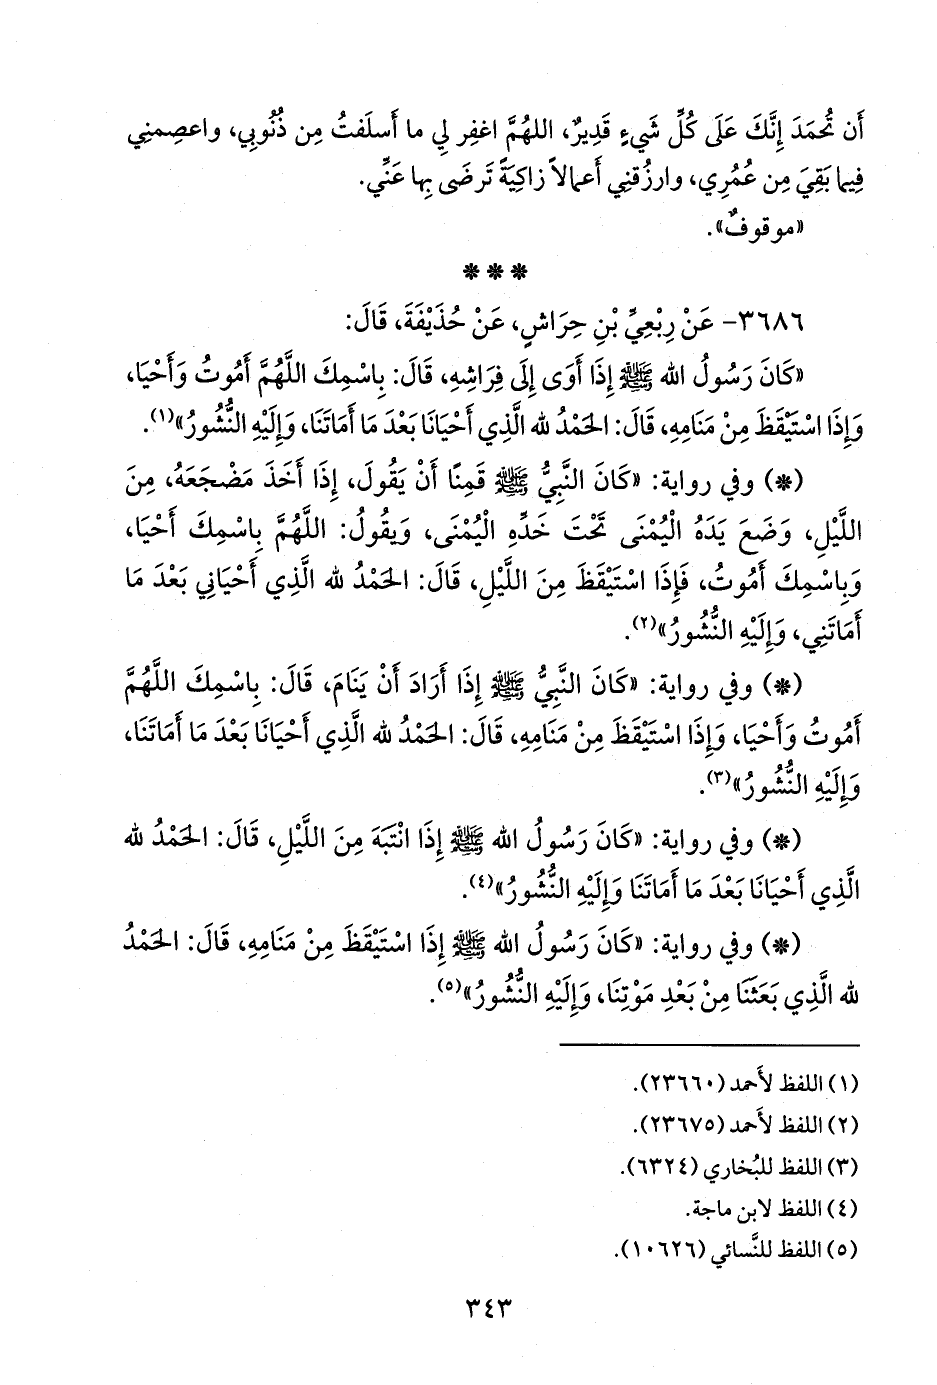 أَن تُحمَدَ إِنَّكَ عَلَى كُلِّ شَيءٍ قَدِيرٌ، اللهُمَّ اغفِر لِي ما أَسلَفتُ مِن ذُنُوبِي، واعصِمنِي
فِيما بَقِيَ مِن عُمُرِي، وارزُقنِي أَعمالاً زاكِيَةً تَرضَى بِها عَنِّي.
«موقوفٌ».
***
٣٦٨٦- عَنْ رِبْعِيِّ بْنِ حِرَاشٍ، عَنْ حُذَيْفَةَ، قَالَ:
«كَانَ رَسُولُ الله ﷺ إِذَا أَوَى إِلَى فِرَاشِهِ، قَالَ: بِاسْمِكَ اللَّهُمَّ أَمُوتُ وَأَحْيَا،
وَإِذَا اسْتَيْقَظَ مِنْ مَنَامِهِ، قَالَ: الحَمْدُ لله الَّذِي أَحْيَانَا بَعْدَ مَا أَمَاتَنَا، وَإِلَيْهِ النُّشُورُ»(١).
(*) وفي رواية: «كَانَ النَّبِيُّ ﷺ قَمِنًا أَنْ يَقُولَ، إِذَا أَخَذَ مَضْجَعَهُ، مِنَ
اللَّيْلِ، وَضَعَ يَدَهُ الْيُمْنَى تَحْتَ خَدِّهِ الْيُمْنَى، وَيقُولُ: اللَّهُمَّ بِاسْمِكَ أَحْيَا،
وَبِاسْمِكَ أَمُوتُ، فَإِذَا اسْتَيْقَظَ مِنَ اللَّيْلِ، قَالَ: الحَمْدُ لله الَّذِي أَحْيَانِي بَعْدَ مَا
أَمَاتَنِي، وَإِلَيْهِ النُّشُورُ»(٢).
(*) وفي رواية: «كَانَ النَّبِيُّ ﷺ إِذَا أَرَادَ أَنْ يَنَامَ، قَالَ: بِاسْمِكَ اللَّهُمَّ
أَمُوتُ وَأَحْيَا، وَإِذَا اسْتَيْقَظَ مِنْ مَنَامِهِ، قَالَ: الحَمْدُ لله الَّذِي أَحْيَانَا بَعْدَ مَا أَمَاتَنَا،
وَإِلَيْهِ النُّشُورُ»(٣).
(*) وفي رواية: «كَانَ رَسُولُ الله ﷺ إِذَا انْتَبَهَ مِنَ اللَّيْلِ، قَالَ: الحَمْدُ لله
الَّذِي أَحْيَانَا بَعْدَ مَا أَمَاتَنَا وَإِلَيْهِ النُّشُورُ»(٤).
(*) وفي رواية: «كَانَ رَسُولُ الله ﷺ إِذَا اسْتَيْقَظَ مِنْ مَنَامِهِ، قَالَ: الحَمْدُ
لله الَّذِي بَعَثَنَا مِنْ بَعْدِ مَوْتِنَا، وَإِلَيْهِ النُّشُورُ»(٥).
(١) اللفظ لأَحمد (٢٣٦٦٠).
(٢) اللفظ لأَحمد (٢٣٦٧٥).
(٣) اللفظ للبُخاري (٦٣٢٤).
(٤) اللفظ لابن ماجة.
(٥) اللفظ للنَّسائي (١٠٦٢٦).
٣٤٣